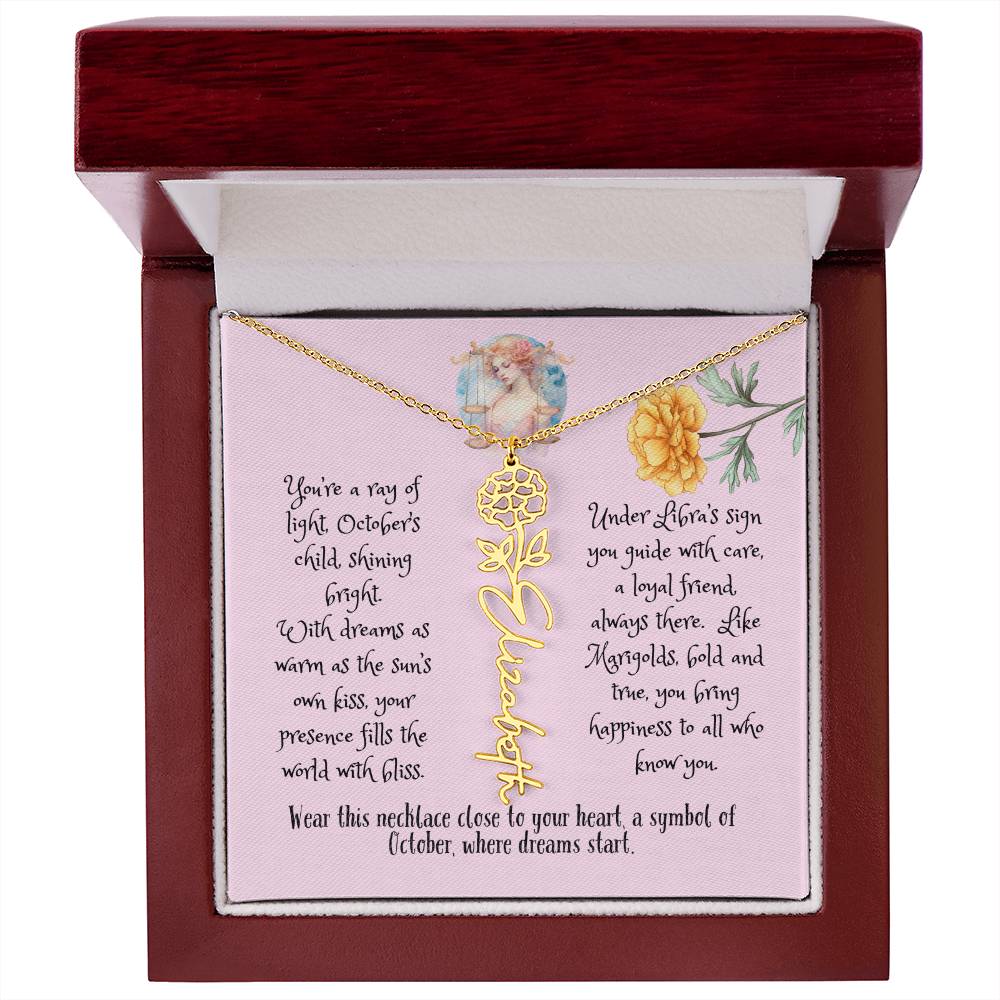 You're a ray of
light, October's
child, shining
bright.
With dreams as
warm as the sun's
own kiss, your
presence fills the
world with bliss.
Elizabeth
Under Libra's sign
you guide with care,
a loyal friend,
always there. Like
Marigolds, bold and
true, you bring
happiness to all who
know you.
Wear this necklace close to your heart, a symbol of
October, where dreams start.